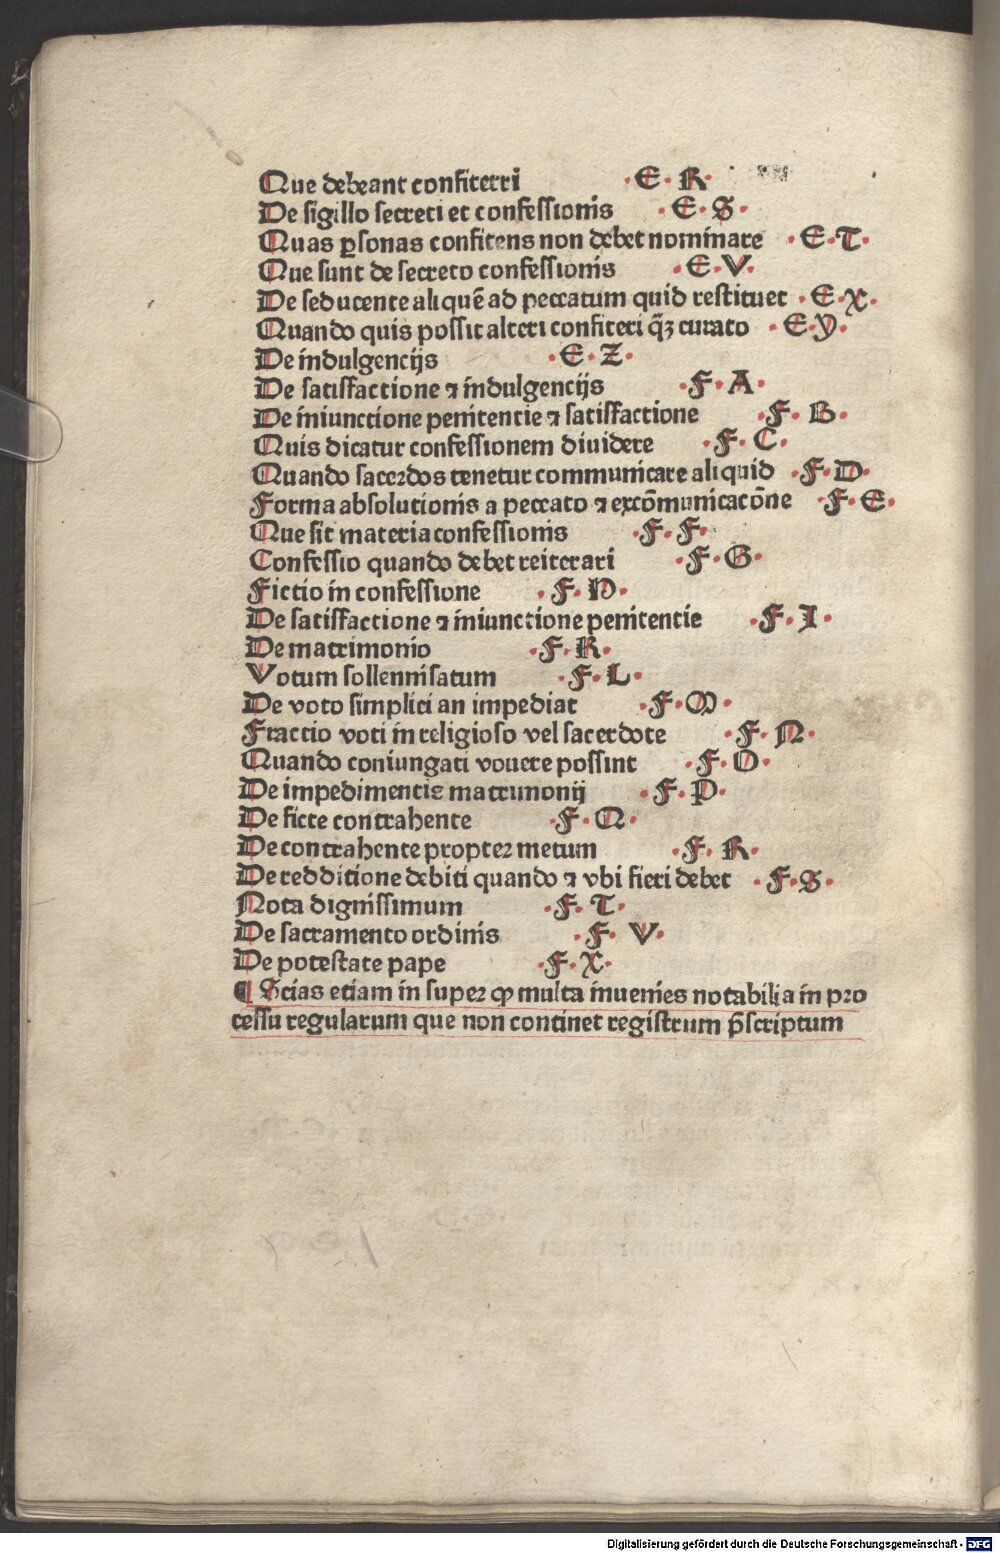 Que debeant confiteri ·E· R·
De sigillo secreti et confessionis ·E·S·
Quas ꝑsonas confitens non debet nominare ·E·T·
Que sunt de secreto confessionis ·E·V·
De seducente aliquē ad peccatum quid restituet ·E·X·
Quando quis possit alteri confiteri q̄ꝫ curato ·E·Y·
De indulgencijs ·E·Z·
De satisfactione ⁊ indulgencijs ·F·A·
De iniunctione penitentie ⁊ satisfactione ·F·B·
Quis dicatur confessionem diuidere ·F·C·
Quando sacerdos tenetur communicare aliquid ·F·D·
Forma absolutionis a peccato ⁊ excōmunicacōne ·F·E·
Que sit materia confessionis ·F·F·
Confessio quando debet reiterari ·F·G·
Fictio in confessione ·F·H·
De satisfactione ⁊ iniunctione penitentie ·F·I·
De matrimonio ·F·K·
Votum sollennisatum ·F·L·
De voto simplici an impediat ·F·M·
Fractio voti in religioso vel sacerdote ·F·N·
Quando coniungati vouere possint ·F·O·
De impedimentis matrimonij ·F·P·
De ficte contrahente ·F·Q·
De contrahente propter metum ·F·R·
De redditione debiti quando ⁊ vbi fieri debet ·F·S·
Nota dignissimum ·F·T·
De sacramento ordinis ·F·V·
De potestate pape ·F·X·
¶ Scias etiam in super ꝙ multa inuenies notabilia in pro
cessu regularum que non continet registrum p̄scriptum
Digitalisierung gefördert durch die Deutsche Forschungsgemeinschaft - DFG